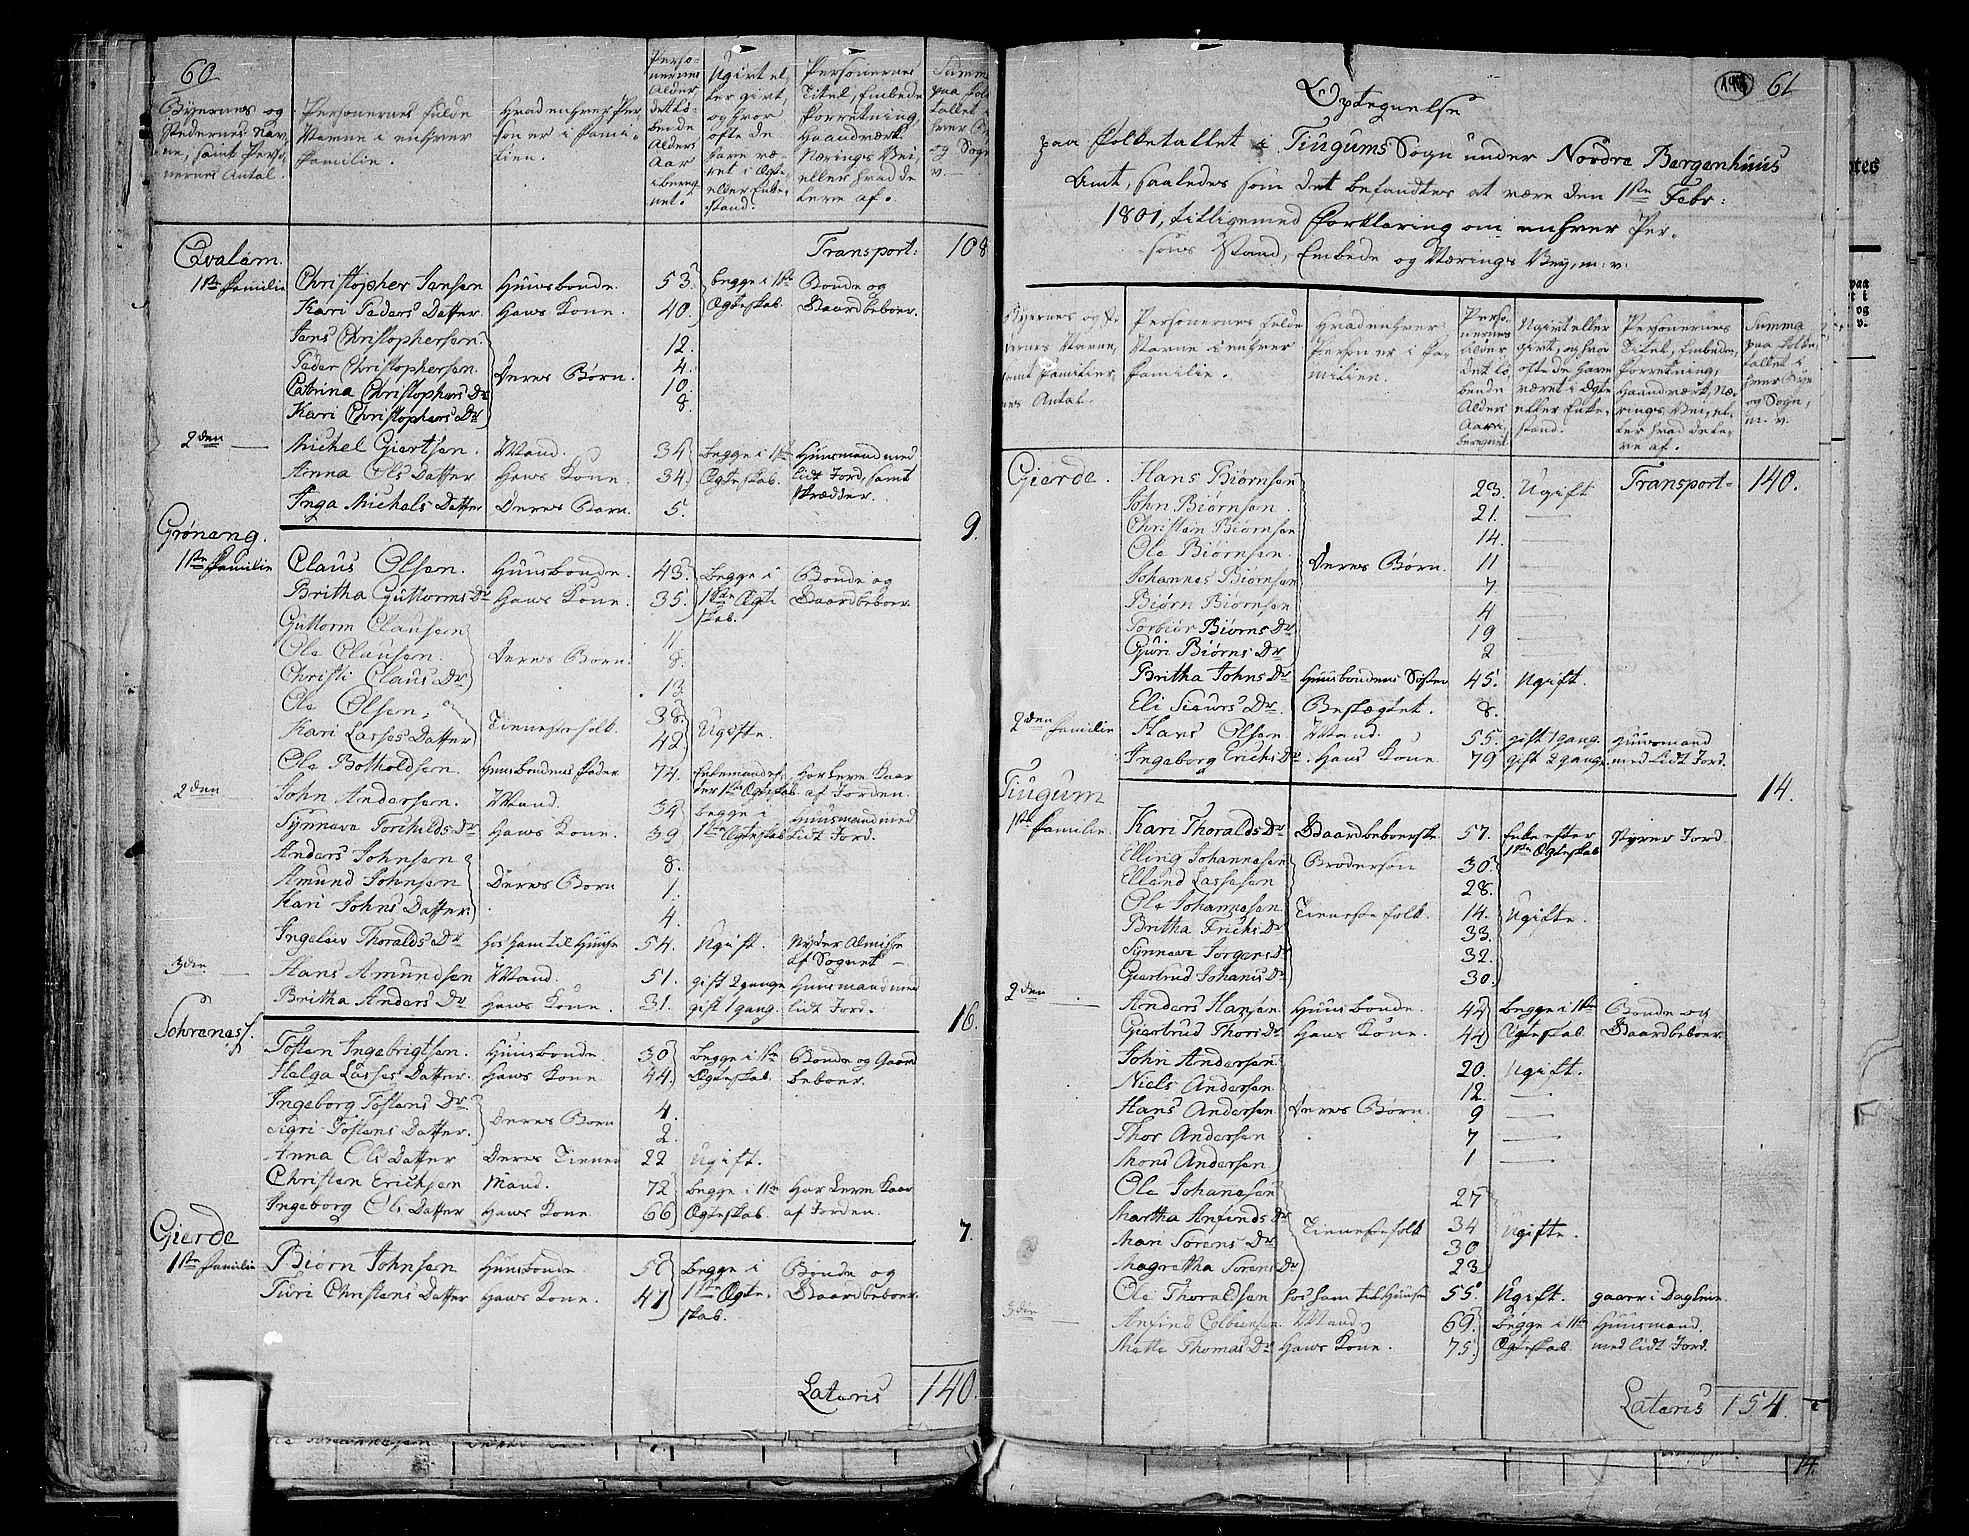 60
Byernes og Stedernes Navne, samt Personernes Antal.
Personernes fulde Navne i enhver Familie.
Hvad enhver Person er i Familien.
Personernes Alder det løbende Alders Aar iberegnet.
Ugivt eller givt, og hvor ofte de have været i Ægte- eller Enkestand.
Personernes Titel, Embede Forretning, Haandværk Nærings Vei, eller hvad de leve af.
Summa paa Folketallet i hver
og Sogn
v.
Qvalem. Transport: 108
1ste Familie Christopher Jansen Huusbonde. 53. begge i 1ste Bonde og
Kari Peders Datter Hans Kone. 40. Ægteskab. Gaardbeboer.
Jens Christophersen. 12.
Peder Christophersen. Deres Børn. 4.
Catrina Christophers Dr 10.
Kari Christophers Dr 8.
2den Michel Giertsen. Mand. 34 begge i 1ste Huusmand med
Anna Ols Datter Hans Kone. 34. Ægteskab. lidt Jord, samt
Inga Michels Datter Deres Barn. 5. Skrædder.
Grøneng. 9.
1ste Familie Claus Olsen. Huusbonde. 43. begge i Bonde og
Britha Guttorms Dr Hans Kone. 35. 1ste Ægte Gaardbeboer.
skab.
Guttorm Clausen 11
Ole Clausen. Deres Børn. 8.
Christi Claus Dr 13.
Ole Olsen. Tienestefolk. 38. Ugifte.
Kari Lasses Datter 42.
Ole Botholdsen. Huusbondens Fader 74. Enkemand ef- Har Leve Kaar
ter 1ste Ægteskab. af Jorden.
2den John Andersen. Mand. 34 begge i Huusmand med
Synneva Torchilds Dr Hans Kone. 39 1ste Ægteskab lidt Jord.
Anders Johnsen 8.
Amund Johnsen Deres Børn 1.
Kari Johns Datter 4.
Ingeleiv Thoralds Dr hos ham til Huuse 54. Ugift. Nyder Almisse
af Sognet
3die Hans Amundsen Mand. 51. gift 2 gange Huusmand med
Britha Anders Dr Hans Kone. 31. gift 1 gang. lidt Jord.
16.
Tosten Ingebrigtsen. Huusbonde. 30 begge i 1ste Bonde og Gaard
Helga Lasses Datter. Hans Kone. 44. Ægteskab. beboer.
Ingeborg Tostens Dr 4.
Sigri Tostens Datter. Deres Børn 2.
Anna Ols Datter Deres Tienes 22 Ugift.
Christen Erichsen Mand. 72 begge i 1ste Har Leve Kaar
Ingeborg Ols Datter Hans Kone. 66 Ægteskab. af Jorden.
Gierde 7.
1ste Familie Biørn Johnsen Huusbonde begge i Bonde og
Turi Christens Datter Hans Kone. 47 1ste Ægte- Gaardbeboer.
skab.
Lateris 140.
61
Optegnelse
paa Folketallet i Tiugums Sogn under Nordre Bergenhuus
Amt, saaledes som det befandtes at være den 1ste Febr:
1801, tilligemed Forklaring om enhver Per-
sons Stand, Embede og Nærings Vey, m: v:
Byernes og Stedernes Navne, samt Familiernes Antal.
Personernes fulde Navne i enhver Familie.
Hvad enhver Person er i Familien.
Personernes Alder Det løbende Alders Aar iberegnet.
Ugivt eller givt, og hvor ofte de have været i Ægte eller Enkestand.
Personernes Titel, Embede, Forretning, Haandværk, Nærings Vei, eller hvad de leve af.
Summa paa Folketallet i hver Bye og Sogn, m. v.
Gierde. Hans Biørnsen 23. Ugift Transport- 140.
John Biørnsen. 21.
Christen Biørnsen 14.
Ole Biørnsen. Deres Børn. 11
Johannes Biørnsen 7
Biørn Biørnsen 4
Torbiør Biørns Dr 19
Guri Biørns Dr 2
Britha Johns Dr Huusbondens Søster 45. Ugift.
Eli Siurs Dr Beslægtet. 8.
2den Familie Hans Olsen Mand. 55. gift 1 gang. Huusmand
Ingeborg Erichs Dr Hans Kone. 79 gift 2 gange. med lidt Jord.
Tiugum 14.
1ste Familie. Kari Thoralds Dr Gaardbeboerske 57. Enke efter Dyrer Jord
1ste Ægteskab
Elling Johannesen Brodersøn 30.
Elland Lassesen 28.
Ole Johannesen Tienestefolk. 14. Ugifte.
Britha Erichs Dr 33.
Synneva Jørgens Dr 32.
Giertrud Johans Dr 30.
2den Anders Hansen Huusbonde. 44 begge i 1ste Bonde og
Giertrud Thors Dr Hans Kone. 44 Ægteskab. Gaardbeboer.
John Andersen 20. Ugift.
Niels Andersen 12.
Hans Andersen Deres Børn. 9
Thor Andersen 7
Mons Andersen 1
Ole Johanesen 27
Martha Anfinds Dr Tienestefolk 34 Ugifte.
Mari Sørens Dr 30
Magretha Sørens Dr 23
Ole Thoraldsen hos ham til Huuse 55. Ugift. gaaer i Dagleie.
3die Anfind Colbiensen Mand 69. begge i 1ste Huusmand.
Mette Thomas Dr Hans Kone. 75. Ægteskab med lidt Jord.
Lateris 154.
14.